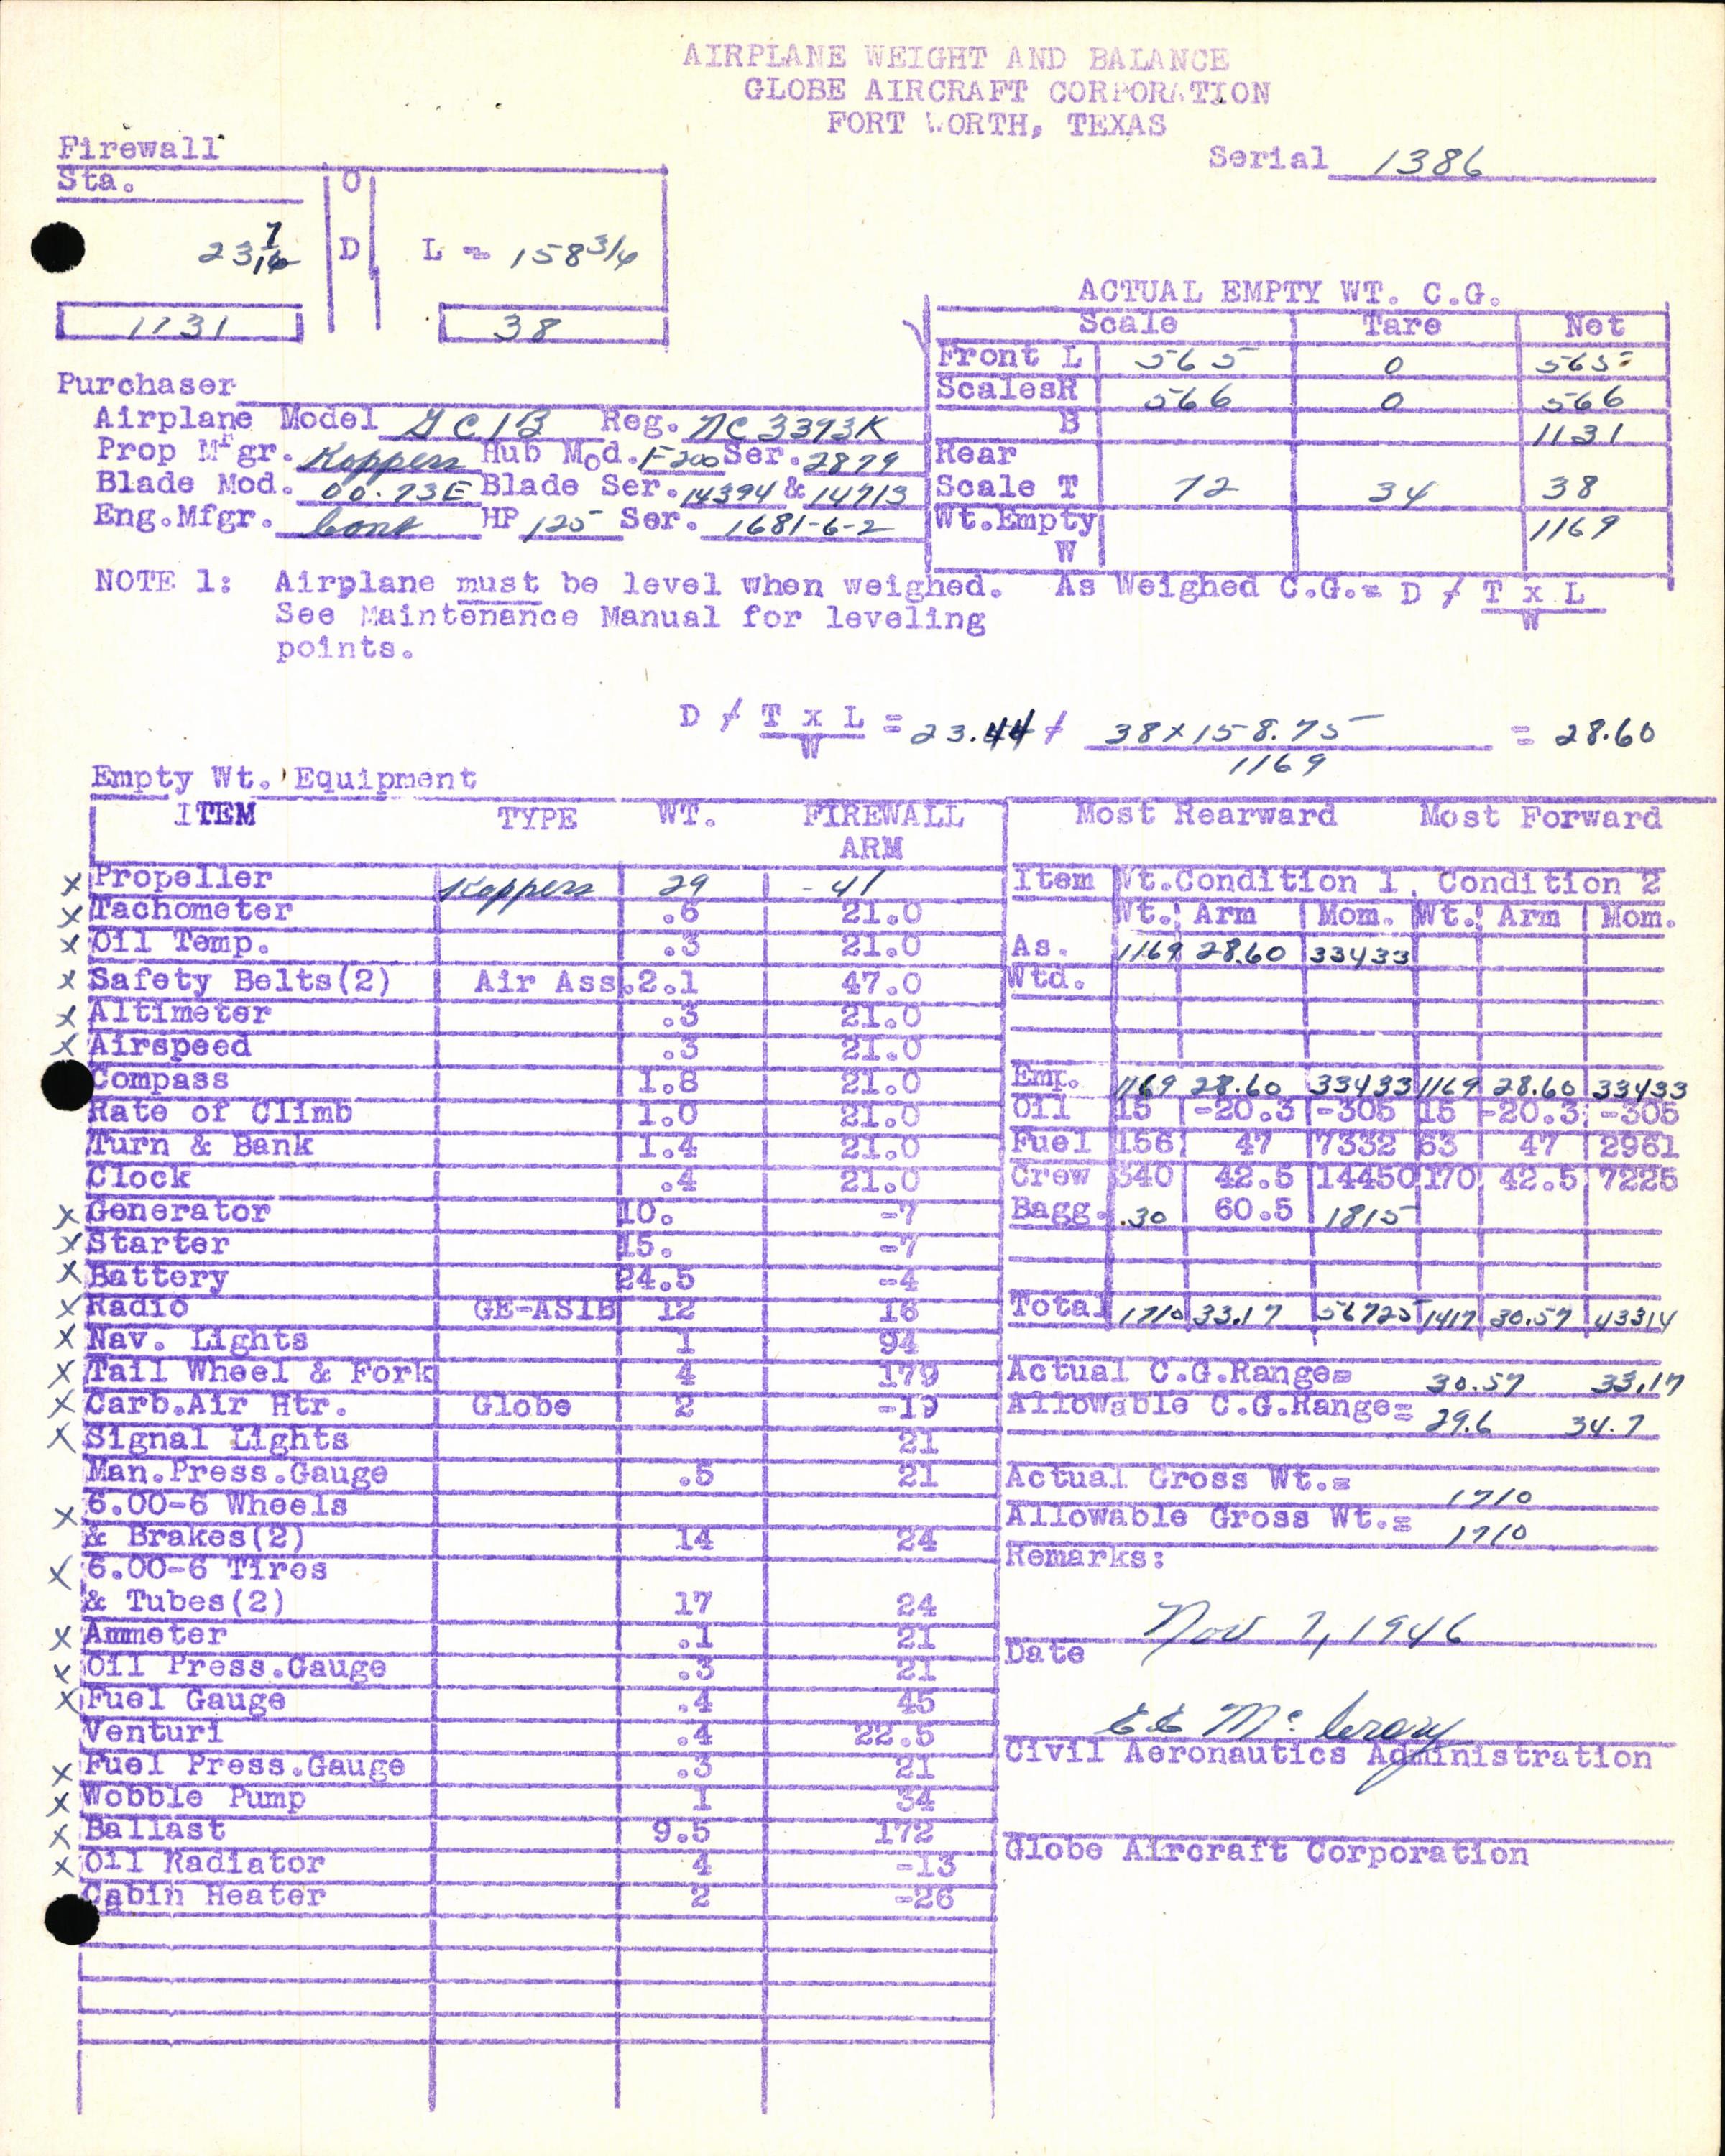 AIRPLANE WEIGHT AND BALANCE
GLOBE AIRCRAFT CORPORATION
FORT WORTH, TEXAS
Serial 1386
Firewall
Sta. O
23 7/16 D L = 158 3/4
1131 38
ACTUAL EMPTY WT. C.G.
Scale Tare Net
Front L 565 0 565
Scales R 566 0 566
B 1131
Rear
Scale T 72 34 38
Wt.Empty 1169
W
Purchaser
Airplane Model GC1B Reg. NC3393K
Prop Mfgr. Koppers Hub Mod. F200 Ser. 2879
Blade Mod. 00-73E Blade Ser. 14394 & 14713
Eng.Mfgr. Cont HP 125 Ser. 1681-6-2
NOTE 1: Airplane must be level when weighed. As Weighed C.G.= D / T x L
See Maintenance Manual for leveling W
points.
D / T x L = 23.44 / 38 x 158.75 = 28.60
W 1169
Empty Wt. Equipment
ITEM TYPE WT. FIREWALL
ARM
X Propeller Koppers 29 -41
X Tachometer .6 21.0
X Oil Temp. .3 21.0
X Safety Belts(2) Air Ass. 2.1 47.0
X Altimeter .3 21.0
X Airspeed .3 21.0
Compass 1.8 21.0
Rate of Climb 1.0 21.0
Turn & Bank 1.4 21.0
Clock .4 21.0
X Generator 10. -7
X Starter 15. -7
X Battery 24.5 -4
X Radio GE-AS1B 12 16
X Nav. Lights 1 94
X Tail Wheel & Fork 4 179
X Carb.Air Htr. Globe 2 -19
X Signal Lights 21
Man.Press.Gauge .5 21
X 6.00-6 Wheels
& Brakes(2) 14 24
X 6.00-6 Tires
& Tubes(2) 17 24
X Ammeter .1 21
X Oil Press.Gauge .3 21
X Fuel Gauge .4 45
Venturi .4 22.5
X Fuel Press.Gauge .3 21
X Wobble Pump 1 34
X Ballast 9.5 172
X Oil Radiator 4 -13
Cabin Heater 2 -26
Most Rearward Most Forward
Item Wt.Condition 1. Condition 2
Wt. Arm Mom. Wt. Arm Mom.
As. 1169 28.60 33433
Wtd.
Emp. 1169 28.60 33433 1169 28.60 33433
Oil 15 -20.3 -305 15 -20.3 -305
Fuel 156 47 7332 63 47 2961
Crew 340 42.5 14450 170 42.5 7225
Bagg. 30 60.5 1815
Total 1710 33.17 56725 1417 30.57 43314
Actual C.G.Range= 30.57 33.17
Allowable C.G.Range= 29.6 34.7
Actual Gross Wt.= 1710
Allowable Gross Wt.= 1710
Remarks:
Nov 7, 1946
Date
EE McCrary
Civil Aeronautics Administration
Globe Aircraft Corporation